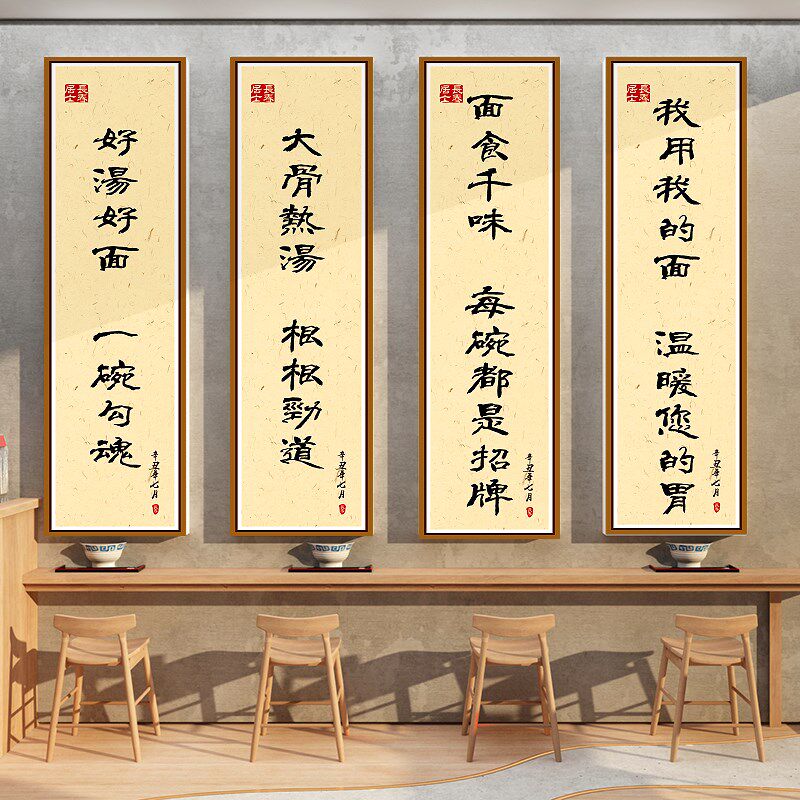 好湯好面 一碗勾魂
辛丑年七月
大骨熱湯 根根勁道
辛丑年七月
面食千味 每碗都是招牌
辛丑年七月
我用我的面 温暖您的胃
辛丑年七月